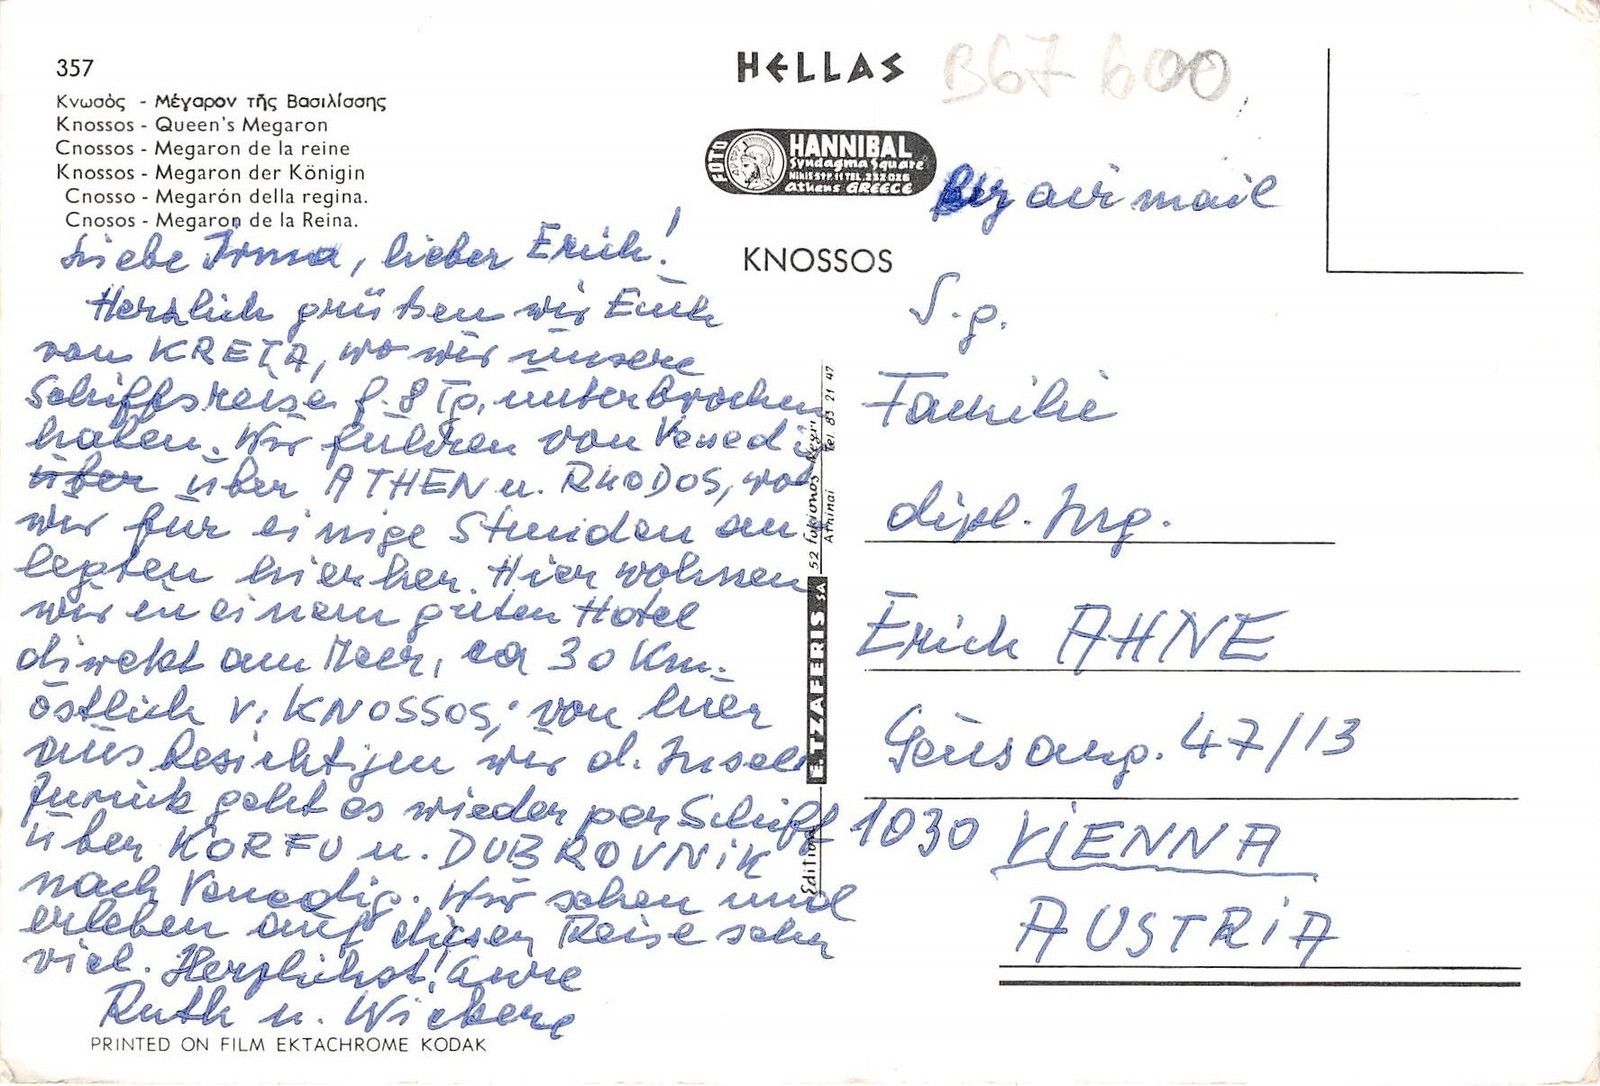 357
Κνωσὸς - Μέγαρον τῆς Βασιλίσσης
Knossos - Queen's Megaron
Cnossos - Megaron de la reine
Knossos - Megaron der Königin
Cnosso - Megarón della regina.
Cnosos - Megaron de la Reina.
Liebe Irma, lieber Erich!
Herzlich grüßen wir Euch
von KRETA, wo wir unsere
Schiffsreise f. 8 Tg. unterbrochen
haben. Wir fuhren von Venedig
über über ATHEN u. RHODOS, wo
wir für einige Stunden an
legten hierher. Hier wohnen
wir in einem guten Hotel
direkt am Meer, ca 30 Km.
östlich v. KNOSSOS; von hier
aus besichtigen wir d. Insel.
Zurück geht es wieder per Schiff
über KORFU u. DUBROVNIK
nach Venedig. Wir sehen und
erleben auf dieser Reise sehr
viel. Herzlichst! Eure
Ruth u.
PRINTED ON FILM EKTACHROME KODAK
HELLAS
B67 600
FOTO
HANNIBAL
Syndagma Square
NIKIS STR. 11 TEL. 232 026
Athens GREECE
KNOSSOS
Edition E. TZAFERIS SA 52 Fokionos Negri
Athinai Tel. 83 21 47
By air mail
S. g.
Familie
dipl. Ing.
Erich AHNE
Geusaug. 47/13
1030 VIENNA
AUSTRIA